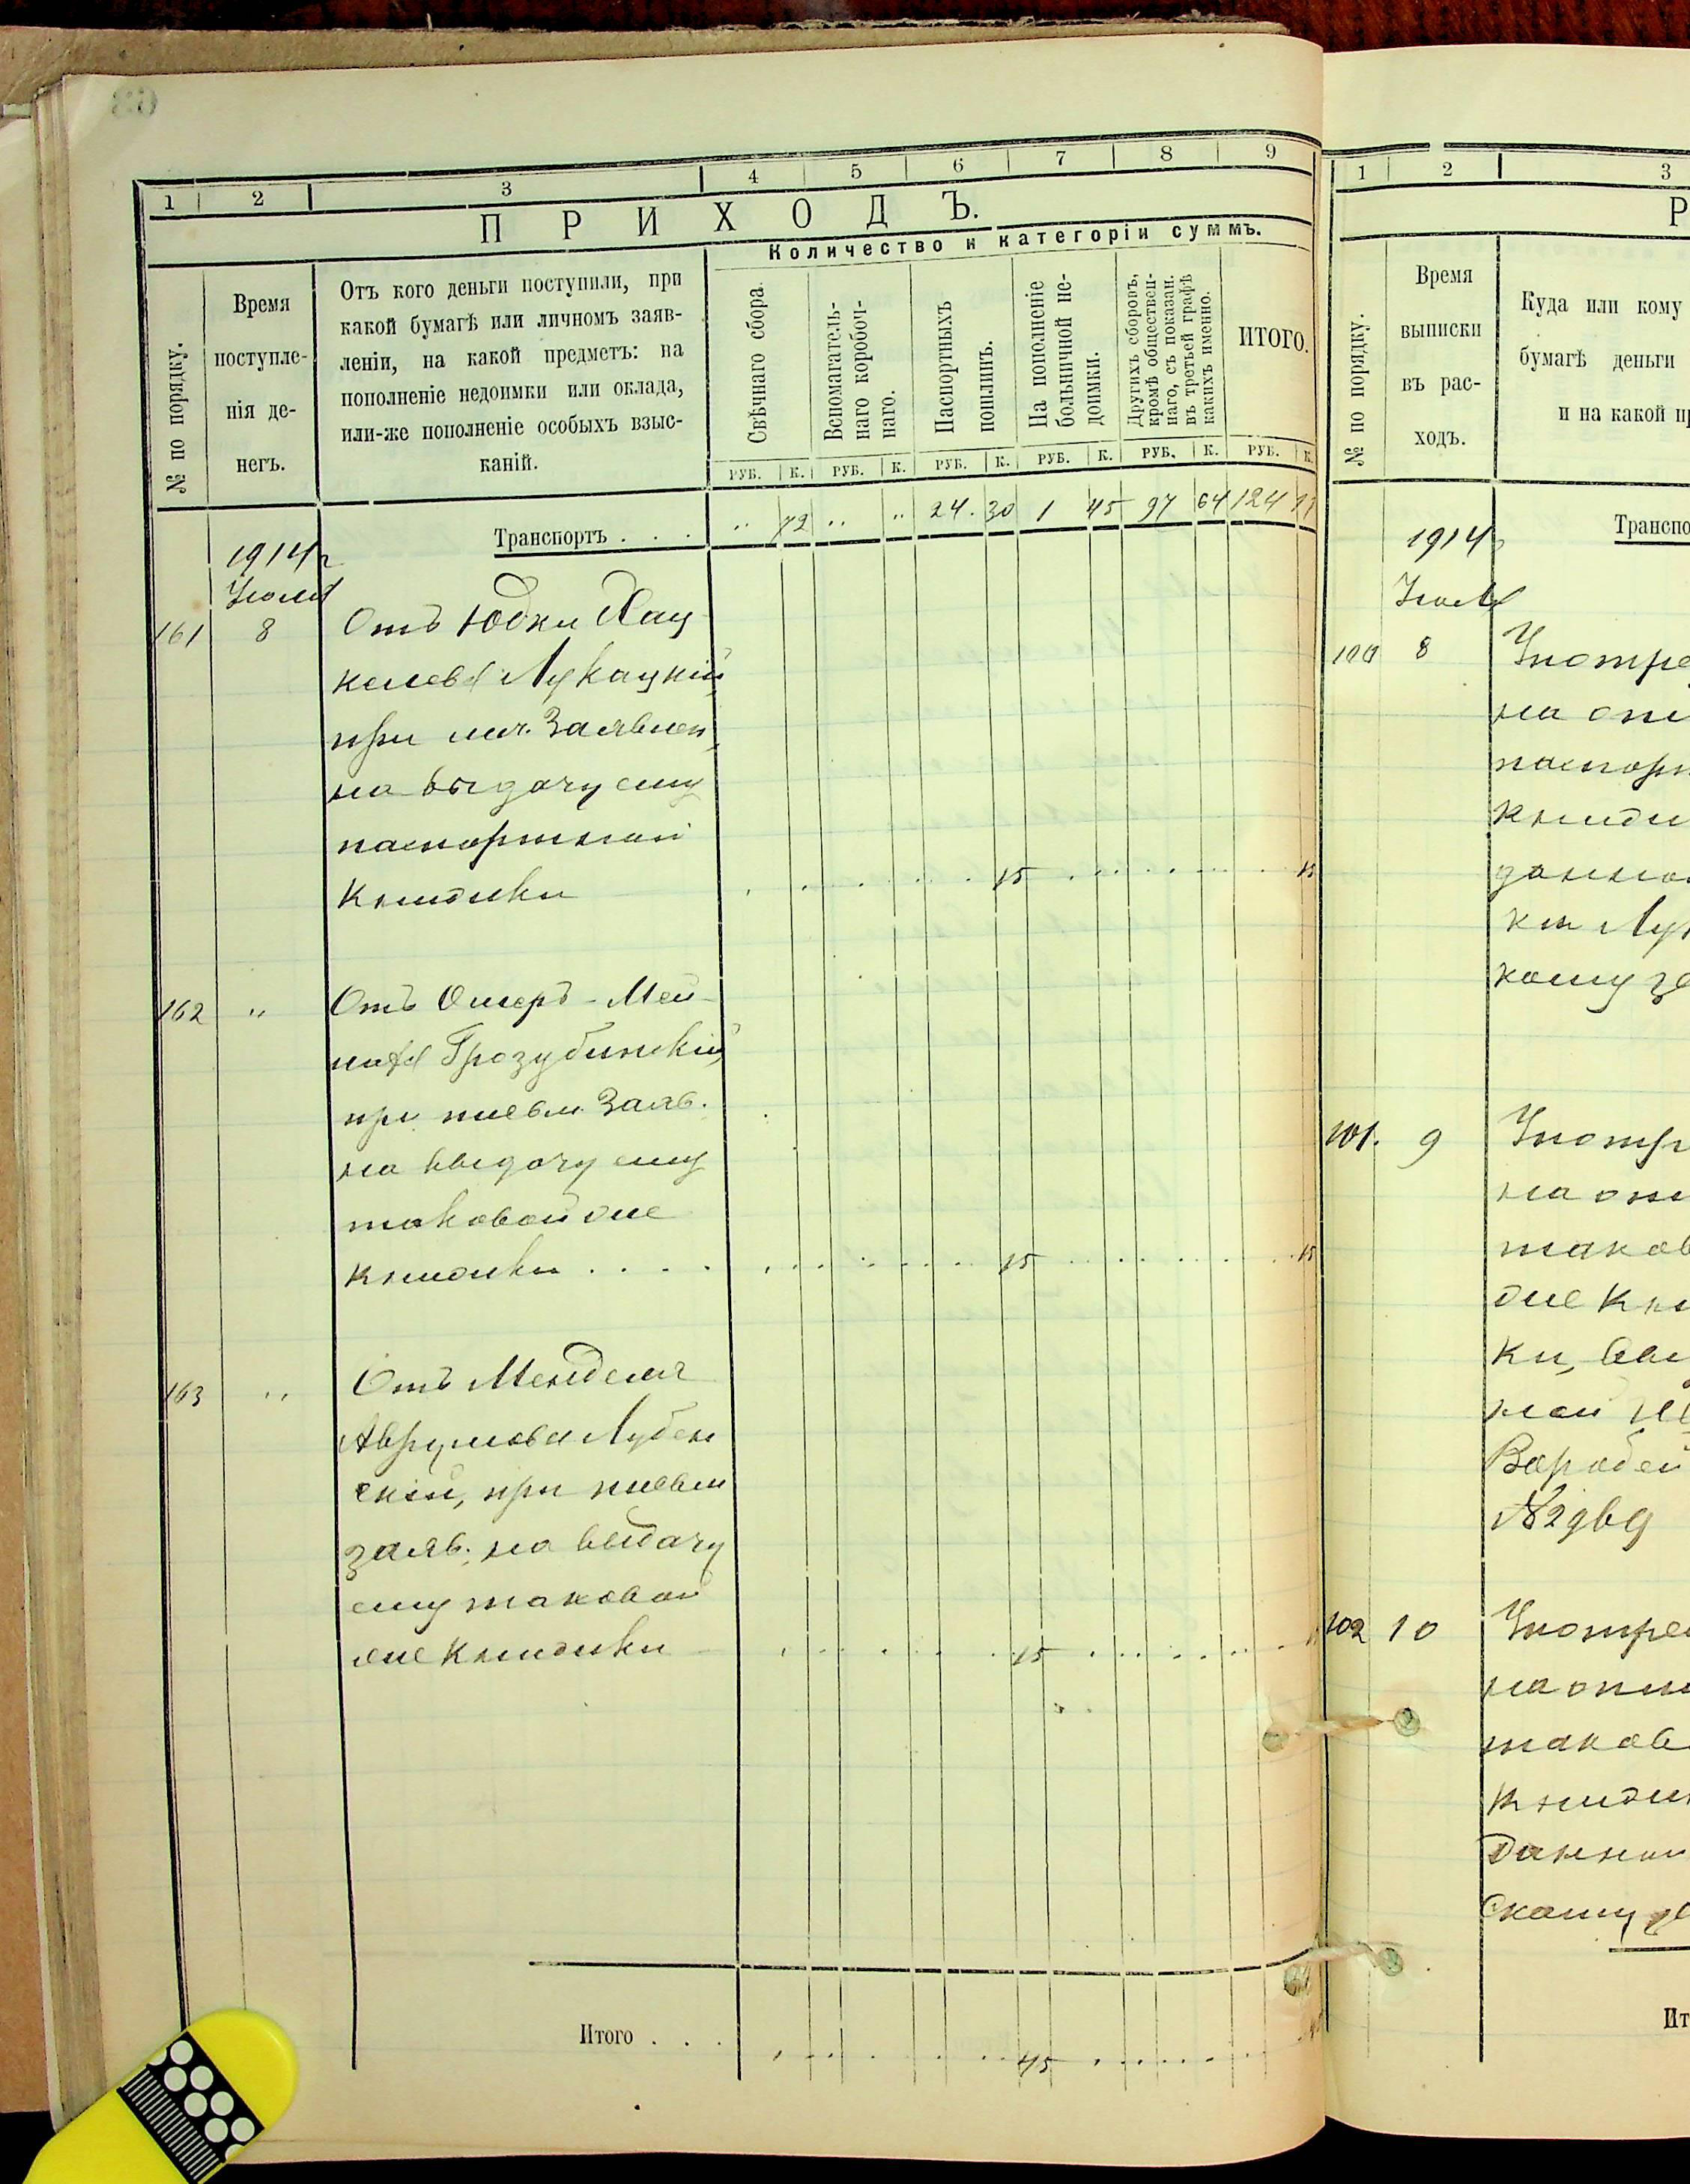 1 2 3 4 5 6 7 8 9
ПРИХОДЪ.
Количество и категоріи суммъ.
№ по порядку.
Время
поступле-
нія де-
негъ.
Отъ кого деньги поступили, при
какой бумагѣ или личномъ заяв-
леніи, на какой предметъ: на
пополненіе недоимки или оклада,
или-же пополненіе особыхъ взыс-
каній.
Свѣчнаго сбора.
Вспомагатель-
наго коробоч-
наго.
Паспортныхъ
пошлинъ.
На пополненіе
больничной не-
доимки.
Другихъ сборовъ,
кромѣ обществен-
наго, съ показан.
въ третьей графѣ
какихъ именно.
ИТОГО.
РУБ. К. РУБ. К. РУБ. К. РУБ. К. РУБ. К. РУБ. К.
Транспортъ . . . " 72 " " 24. 30 1 45 97 64 124 11
1914 г
Іюля
161 8 Отъ Юдки Хац
келева Лукацкій
при лич. Заявлен,
на выдачу ему
паспортной
книжки 15 15
162 " Отъ Ошеръ-Мей-
Грозубинскій,
при писвм. Заяв.
на выдачу ему
таковой же
книжки . . . . 15 15
163 " Отъ Менделя
Аврумова Лубен
скій, при писвм
заяв. на выдачу
ему таковой
же книжки 15
Итого . . . 45
1 2 3
Р
№ по порядку.
Время
выписки
въ рас-
ходъ.
Куда или кому
бумагѣ деньги
и на какой п
Транспо
1914 г
Іюля
100 8 Употре
на опл
паспорт
книжк
данно
ки Лук
кому
101. 9 Употр
на опл
таков
же кн
ки, вы
ной
Воробей
№ 2969
102 10 Употре
на опл
таков
книжк
данной
скому
Ит